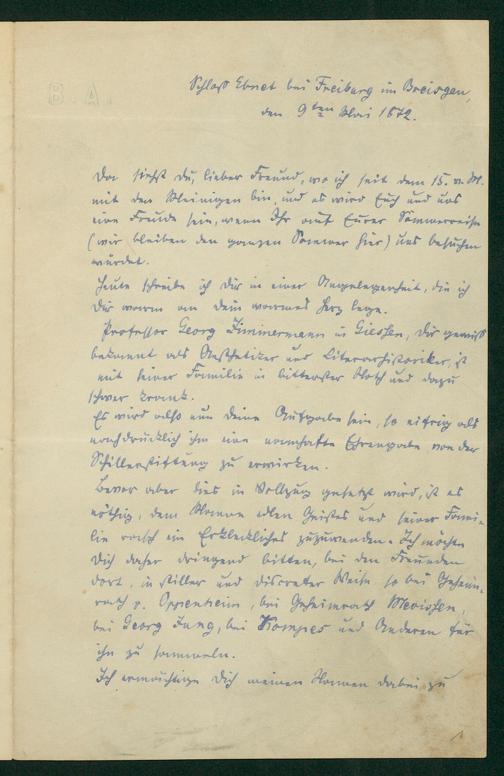 B. A.
Schloß Ebnet bei Freiburg im Breisgau,
den 9ten Mai 1872.
Da siehst du, lieber Freund, wo ich seit dem 15. v. M.
mit den Meinigen bin, und es wird Euch und uns
eine Freude sein, wenn Ihr auf Eurer Sommerreise
(wir bleiben den ganzen Sommer hier) uns besuchen
würdet.
Heute schreibe ich dir in einer Angelegenheit, die ich
dir warm an dein warmes Herz lege.
Professor Georg Zimmermann in Gießen, dir gewiß
bekannt als Aesthetiker und Literarhistoriker, ist
mit seiner Familie in bitterster Noth und dazu
schwer krank.
Es wird also nun deine Aufgabe sein, so eifrig als
nachdrücklich ihm eine namhafte Ehrengabe von der
Schillerstiftung zu erwirken.
Bevor aber dies in Vollzug gesetzt wird, ist es
nöthig, dem Manne edlen Geistes und seiner Fami-
lie rasch ein Erkleckliches zuzuwenden. Ich möchte
dich daher dringend bitten, bei den Freunden
dort, in stiller und discreter Weise so bei Geheim-
rath v. Oppenheim, bei Geheimrath Mevissen,
bei Georg Jung, bei Kompes und Anderen für
ihn zu sammeln.
Ich ermächtige dich meinen Namen dabei zu
1